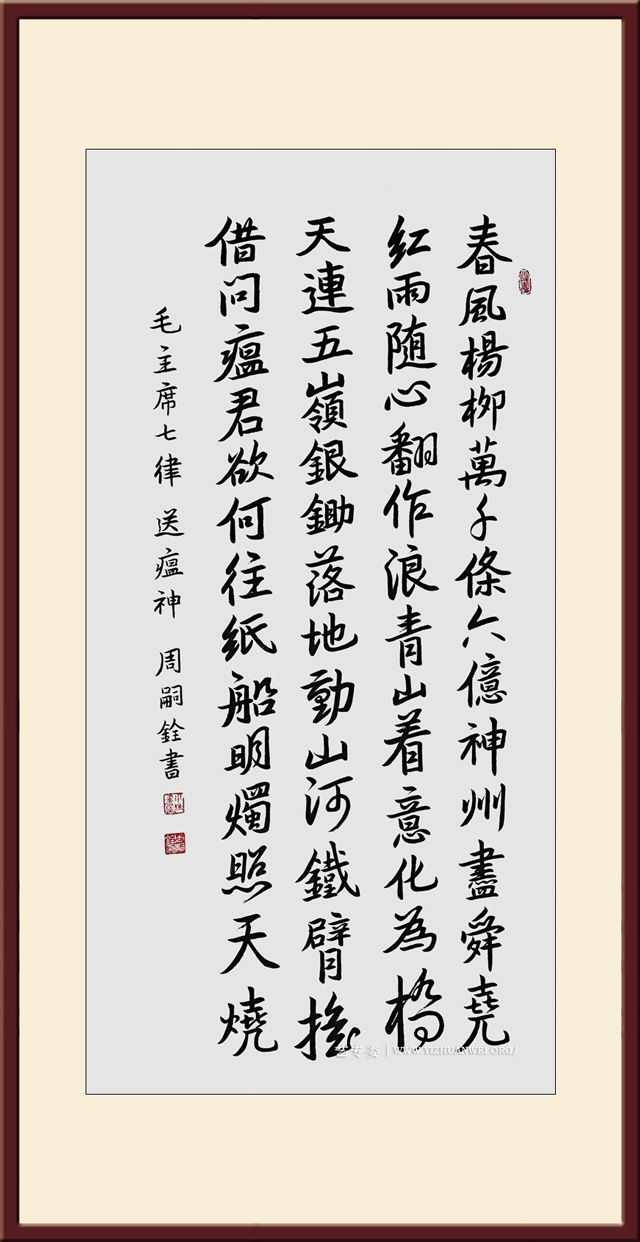 春風楊柳萬千條六億神州盡舜堯
红雨随心翻作浪青山着意化為橋
天連五嶺銀鋤落地動山河鐵臂摇
借问瘟君欲何往紙船明燭照天燒
毛主席七律 送瘟神 周嗣銓書
艺专委 | WWW.YIZHUANWEI.ORG/